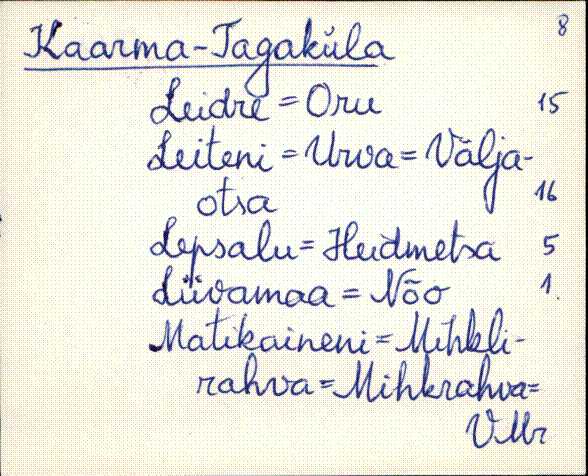 8
Kaarma-Tagaküla
Leidre = Oru 15
Leiteni = Urva = Välja-
otsa 16
Lepsalu = Heidmetsa 5
Liivamaa = Nõo 1
Matikaineni = Mihkli-
rahva = Mihkrahva =
VMr